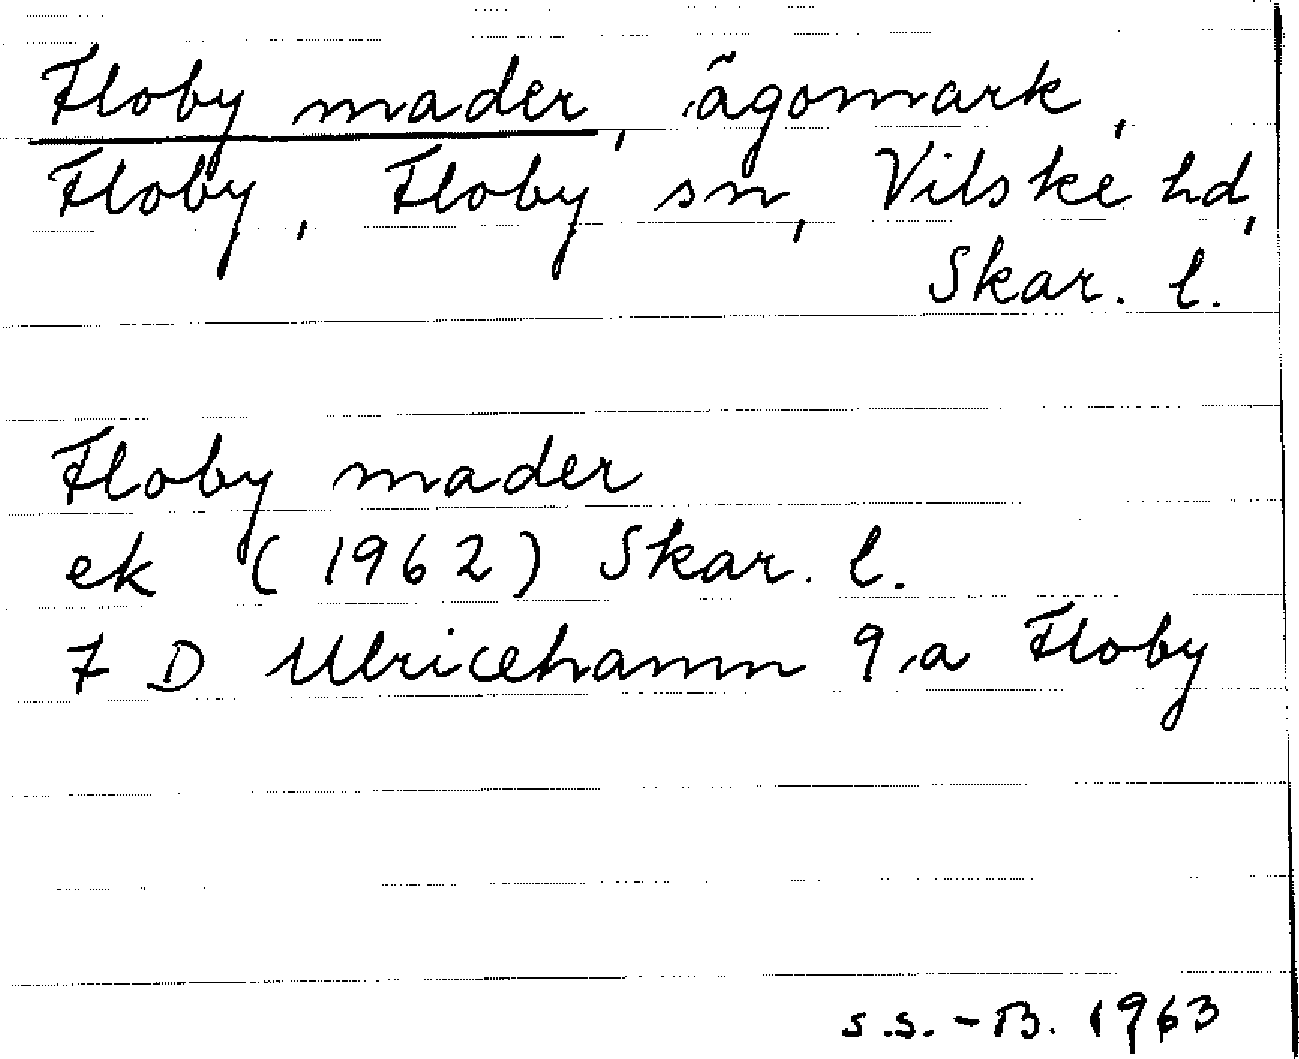 Floby mader, ägomark,
Floby, Floby sn, Vilske hd,
Skar. l.
Floby mader
ek (1962) Skar. l.
7 D Ulricehamn 9 a Floby
s.s.-B. 1963